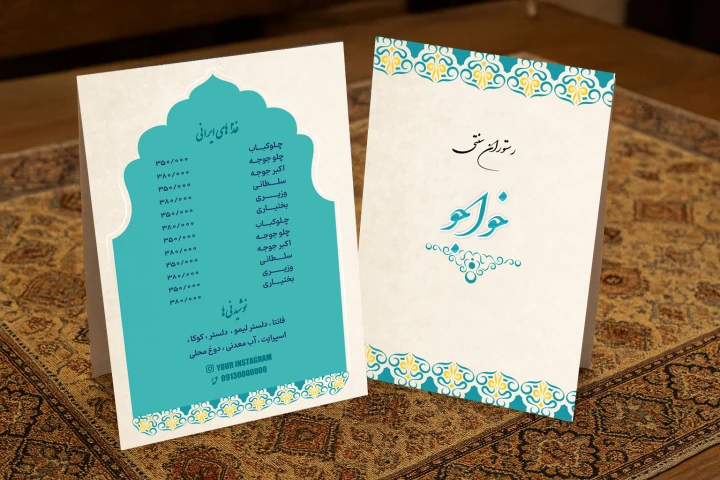 غذاهای ایرانی
چلوکباب ۳۵۰/۰۰۰
چلو جوجه ۳۸۰/۰۰۰
اکبر جوجه ۳۵۰/۰۰۰
سلطانی ۳۸۰/۰۰۰
وزیری ۳۵۰/۰۰۰
بختیاری ۳۸۰/۰۰۰
چلوکباب ۳۵۰/۰۰۰
چلو جوجه ۳۸۰/۰۰۰
اکبر جوجه ۳۵۰/۰۰۰
سلطانی ۳۸۰/۰۰۰
وزیری ۳۵۰/۰۰۰
بختیاری ۳۸۰/۰۰۰
نوشیدنی‌ها
فانتا ، دلستر لیمو ، دلستر ، کوکا ،
اسپرایت ، آب معدنی ، دوغ محلی
YOUR INSTAGRAM
09130000000
رستوران سنتی
خواجو